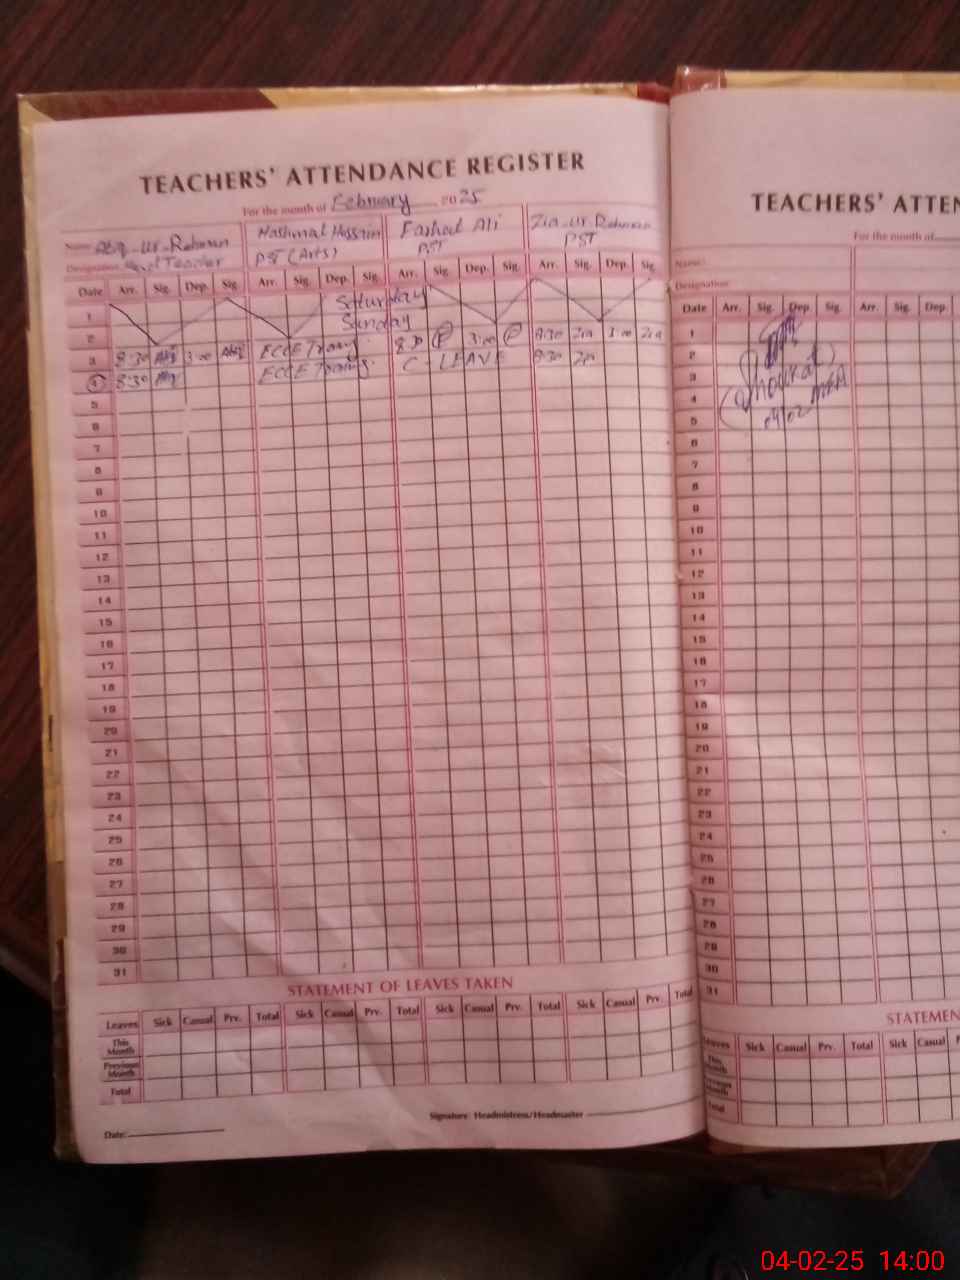 TEACHERS' ATTENDANCE REGISTER
For the month of February 2025
Name: Atiq-ur-Rehman Hashmat Hussain Farhad Ali Zia-ur-Rehman
Designation: Head Teacher PST (Arts) PST PST
Date Arr. Sig. Dep. Sig. Arr. Sig. Dep. Sig. Arr. Sig. Dep. Sig. Arr. Sig. Dep. Sig.
1 Saturday
2 Sunday
3 8:30 Atiq 3:00 Atiq ECCE 8:30 3:00 8:30 Zia 3:00 Zia
4 8:30 Atiq ECCE C-LEAVE 8:30 Zia
5
6
7
8
9
10
11
12
13
14
15
16
17
18
19
20
21
22
23
24
25
26
27
28
29
30
31
STATEMENT OF LEAVES TAKEN
Leaves Sick Casual Prv. Total Sick Casual Prv. Total Sick Casual Prv. Total Sick Casual Prv. Total
This Month
Previous Month
Total
Signature Headmistress/Headmaster
Date:
TEACHERS' ATTEN
For the month of
Name:
Designation:
Date Arr. Sig. Dep. Sig. Arr. Sig. Dep.
1
2
3
4
5
6
7
8
9
10
11
12
13
14
15
16
17
18
19
20
21
22
23
24
25
26
27
28
29
30
31
Shoukat
04/02 MEA
STATEMEN
Leaves Sick Casual Prv. Total Sick Casual
04-02-25 14:00